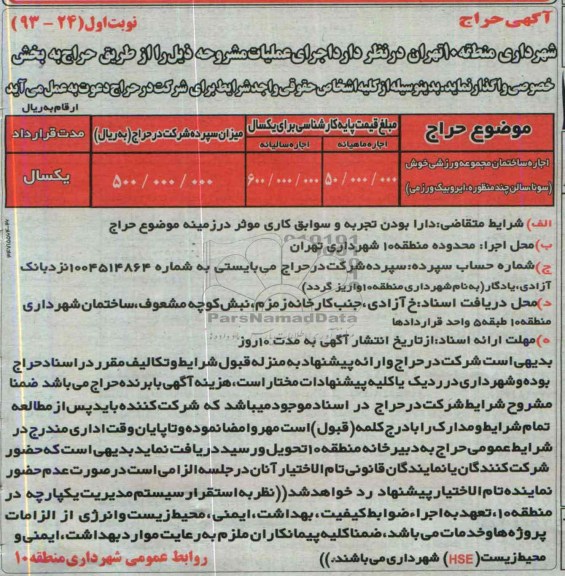 آگهی حراج
نوبت اول (۲۴ - ۹۳)
شهرداری منطقه ۱۰ تهران درنظر دارد اجرای عملیات مشروحه ذیل را از طریق حراج به بخش
خصوصی واگذار نماید، بدینوسیله از کلیه اشخاص حقوقی واجد شرایط برای شرکت در حراج دعوت به عمل می آید
ارقام به ریال
موضوع حراج
مبلغ قیمت پایه کارشناسی برای یکسال
اجاره ماهیانه
اجاره سالیانه
میزان سپرده شرکت در حراج (به ریال)
مدت قرارداد
اجاره ساختمان مجموعه ورزشی خوش
(سونا، سالن چند منظوره، ایروبیک ورزمی)
۵۰/۰۰۰/۰۰۰
۶۰۰/۰۰۰/۰۰۰
۵۰۰/۰۰۰/۰۰۰
یکسال
الف) شرایط متقاضی: دارا بودن تجربه و سوابق کاری موثر در زمینه موضوع حراج
ب) محل اجرا: محدوده منطقه ۱۰ شهرداری تهران
ج) شماره حساب سپرده: سپرده شرکت در حراج می بایستی به شماره ۱۰۰۴۵۱۴۸۶۴ نزد بانک
آزادی، یادگار (به نام شهرداری منطقه ۱۰ واریز گردد)
د) محل دریافت اسناد: خ آزادی، جنب کارخانه زمزم، نبش کوچه مشعوف، ساختمان شهرداری
منطقه ۱۰ طبقه ۵ واحد قراردادها
ه) مهلت ارائه اسناد: از تاریخ انتشار آگهی به مدت ۱۰ روز
بدیهی است شرکت در حراج و ارائه پیشنهاد به منزله قبول شرایط و تکالیف مقرر در اسناد حراج
بوده و شهرداری در رد یک یا کلیه پیشنهادات مختار است، هزینه آگهی با برنده حراج می باشد ضمنا
مشروح شرایط شرکت در حراج در اسناد موجود میباشد که شرکت کننده باید پس از مطالعه
تمام شرایط و مدارک را با درج کلمه (قبول) است مهر و امضا نموده و تا پایان وقت اداری مندرج در
شرایط عمومی حراج به دبیرخانه منطقه ۱۰ تحویل و رسید دریافت نماید بدیهی است که حضور
شرکت کنندگان یا نمایندگان قانونی تام الاختیار آنان در جلسه الزامی است در صورت عدم حضور
نماینده تام الاختیار پیشنهاد رد خواهد شد ((نظر به استقرار سیستم مدیریت یکپارچه در
منطقه ۱۰، تعهد به اجراء ضوابط کیفیت، بهداشت، ایمنی، محیط زیست و انرژی از الزامات
پروژه ها و خدمات می باشد، ضمنا کلیه پیمانکاران ملزم به رعایت موارد بهداشت، ایمنی و
محیط زیست (HSE) شهرداری می باشند.))
روابط عمومی شهرداری منطقه ۱۰
ParsNamadData